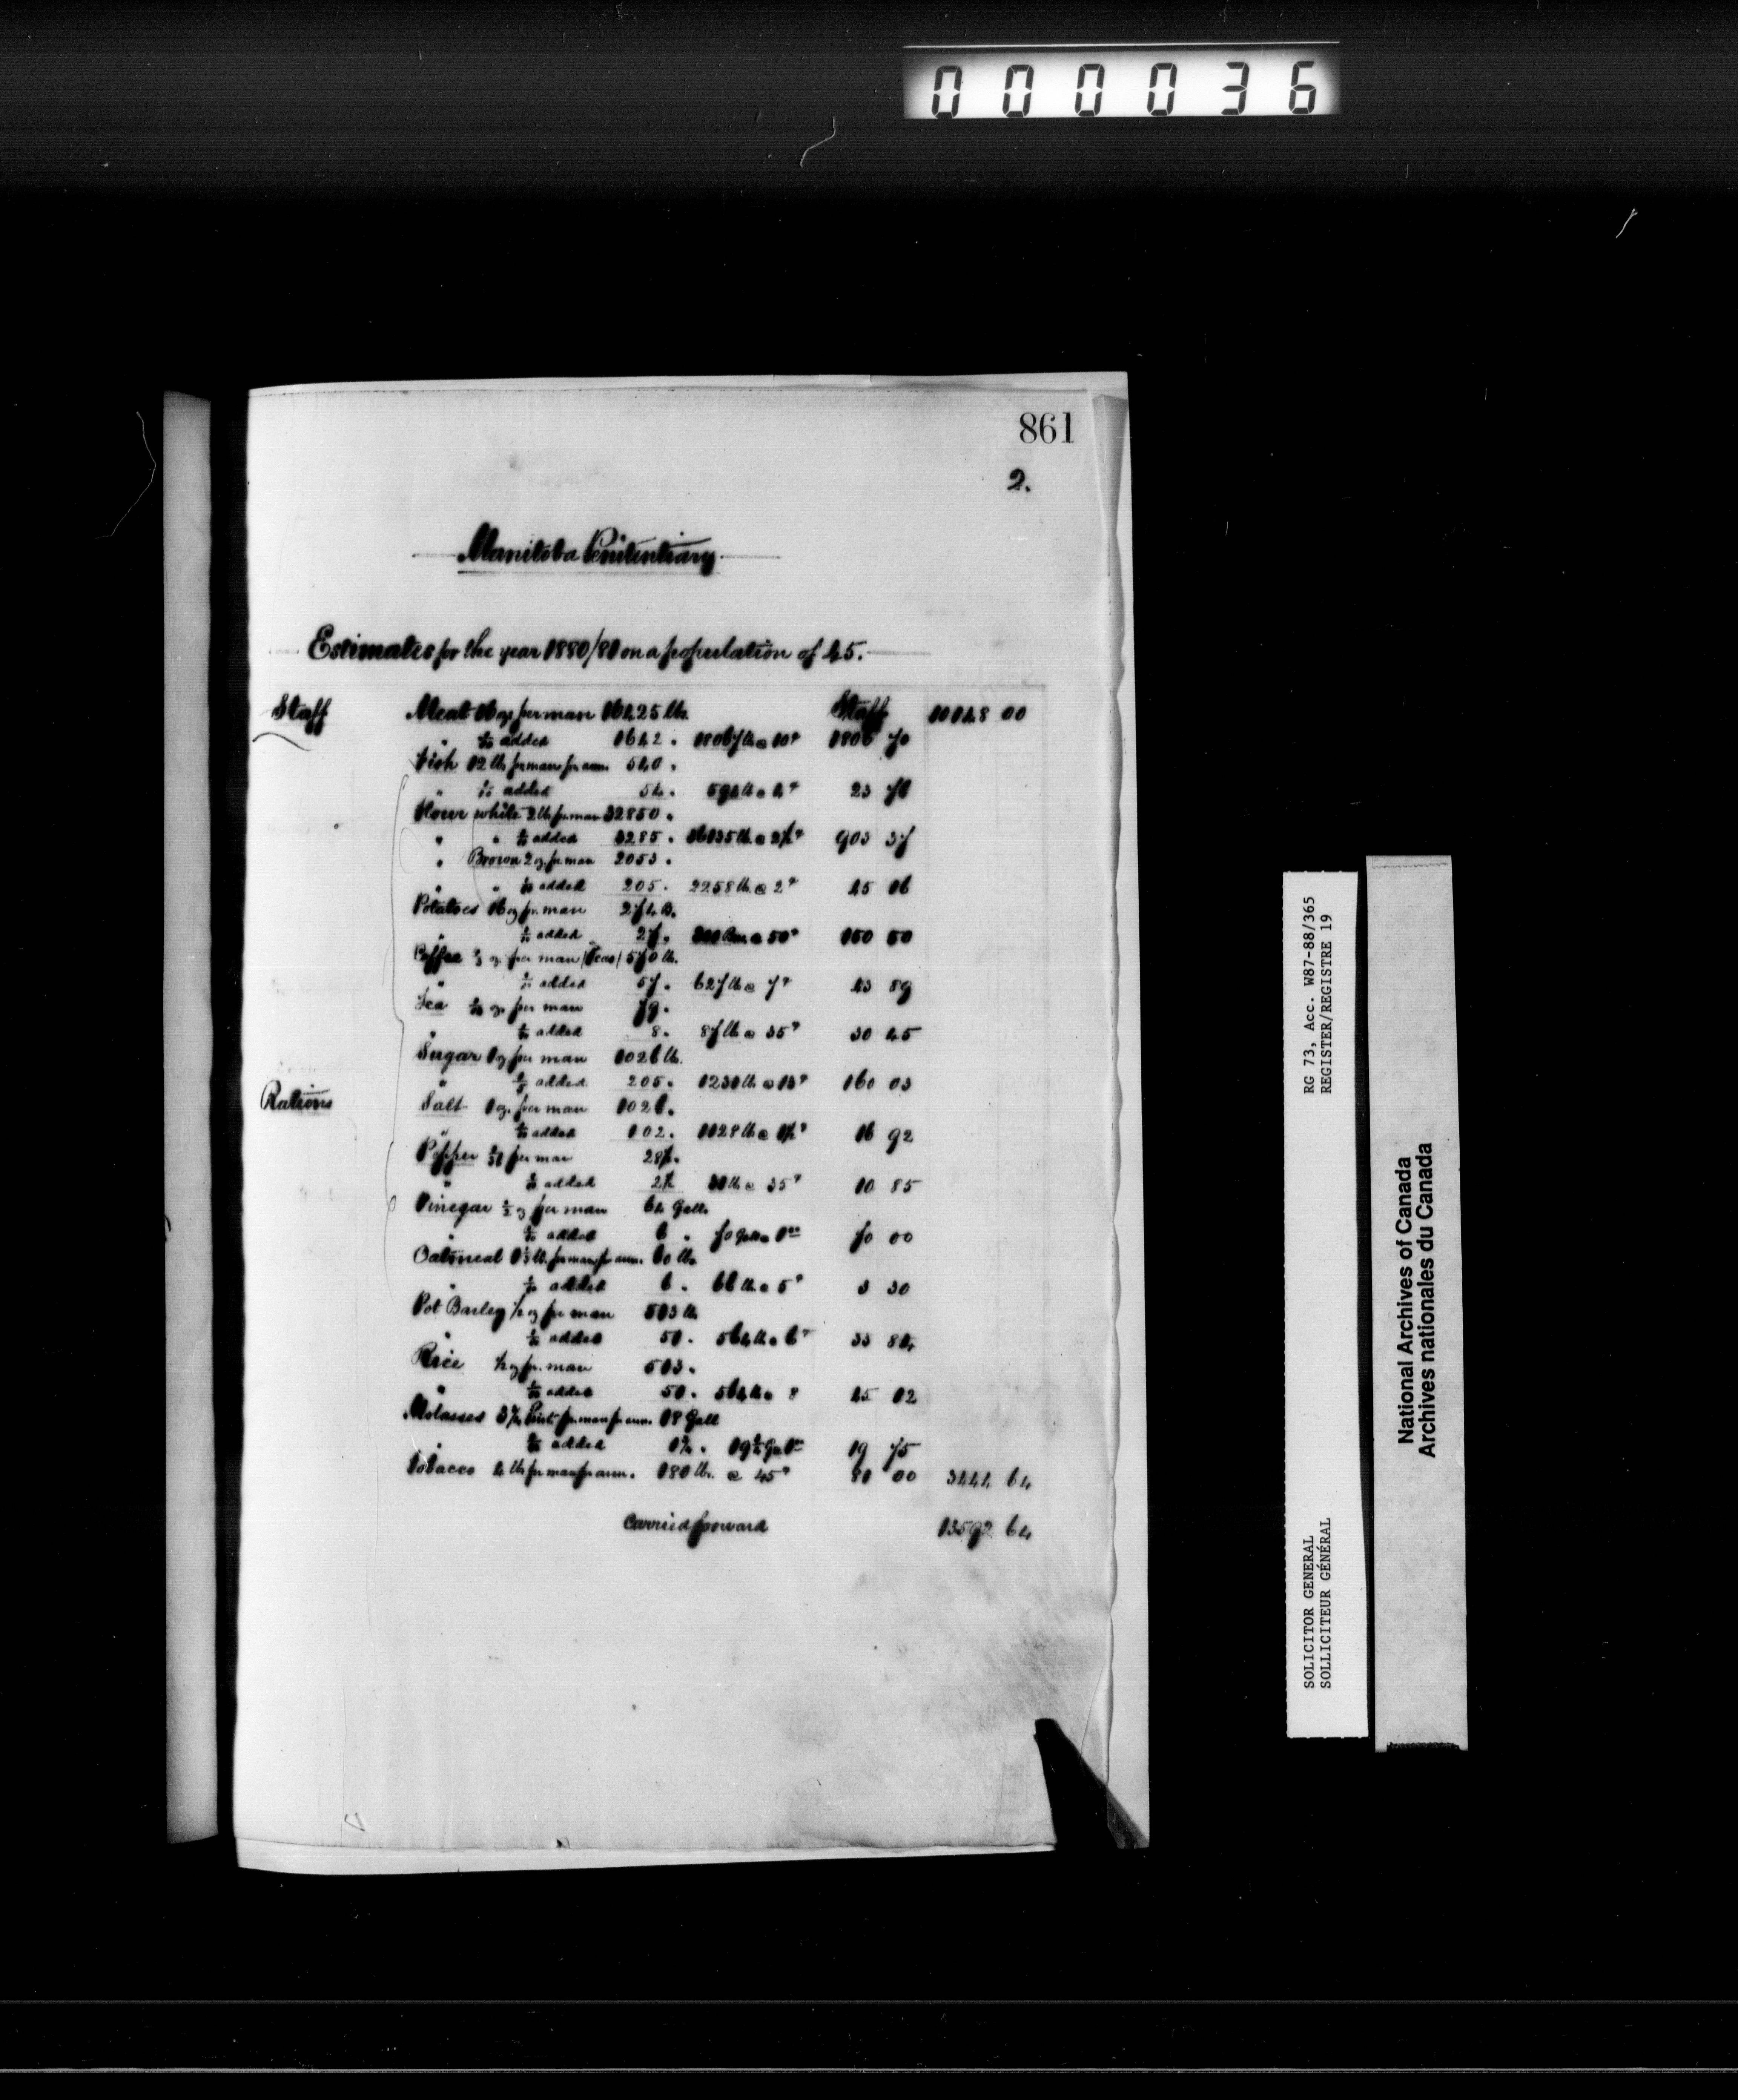 000036
861
2.
Manitoba Penitentiary
Estimates for the year 1880/81 on a population of 45.
Staff Meat 16 oz per man 16425 lbs. Staff 10148 00
" 1/10 added 1642 " 18067 lb @ 10c 1806 70
Fish 12 lbs per man per ann. 540 "
" 1/10 added 54 " 594 lb @ 4c 23 76
Flour white 2 lb per man 32850 "
" " 1/10 added 3285 " 36135 lb @ 2½c 903 37
" Brown 2 oz per man 2053 "
" " 1/10 added 205 " 2258 lb @ 2c 45 16
Potatoes 16 oz pr. man 274 B.
" 1/10 added 27 " 301 Bus @ 50c 150 50
Coffee oz per man (Peas) 570 lb.
" 1/10 added 57 " 627 lb @ 7c 43 89
Tea oz per man 79 "
" 1/10 added 8 " 87 lb @ 35c 30 45
Sugar 1 oz per man 1026 lb.
" 1/5 added 205 " 1231 lb @ 13c 160 03
Rations Salt 1 oz. per man 1026 "
" 1/10 added 102 " 1128 lb @ 1½c 16 92
Pepper per man 28½ "
" 1/10 added 2½ 31 lb @ 35c 10 85
Vinegar ½ oz per man 64 Gall.
" 1/10 added 6 " 70 Galls @ 70 00
Oatmeal 1⅓ lb. per man pr ann. 60 lbs
" 1/10 added 6 " 66 lb @ 5c 3 30
Pot Barley ½ oz per man 513 lb
" 1/10 added 51 " 564 lb @ 6c 33 84
Rice ½ oz pr. man 513 "
" 1/10 added 51 " 564 lb @ 8 45 12
Molasses Pint pr. man pr ann. 18 Gall
" 1/10 added 1¾ " 19¾ Ga 19 75
Tobacco 4 lb pr man pr ann. 180 lbs. @ 45c 81 00 3444 64
Carried forward 13592 64
SOLICITOR GENERAL RG 73, Acc. W87-88/365
SOLLICITEUR GÉNÉRAL REGISTER/REGISTRE 19
National Archives of Canada
Archives nationales du Canada